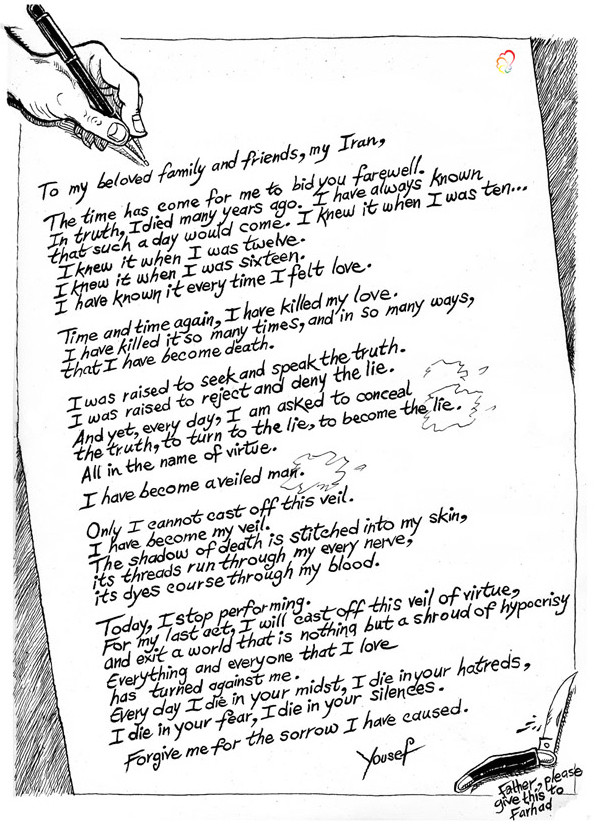 To my beloved family and friends, my Iran,
The time has come for me to bid you farewell.
In truth, I died many years ago. I have always known
that such a day would come. I knew it when I was ten...
I knew it when I was twelve.
I knew it when I was sixteen.
I have known it every time I felt love.
Time and time again, I have killed my love.
I have killed it so many times, and in so many ways,
that I have become death.
I was raised to seek and speak the truth.
I was raised to reject and deny the lie.
And yet, every day, I am asked to conceal
the truth, to turn to the lie, to become the lie.
All in the name of virtue.
I have become a veiled man.
Only I cannot cast off this veil.
I have become my veil.
The shadow of death is stitched into my skin,
its threads run through my every nerve,
its dyes course through my blood.
Today, I stop performing.
For my last act, I will cast off this veil of virtue,
and exit a world that is nothing but a shroud of hypocrisy
Everything and everyone that I love
has turned against me.
Every day I die in your midst, I die in your hatreds,
I die in your fear, I die in your silences.
Forgive me for the sorrow I have caused.
Yousef
Father, please
give this to
Farhad